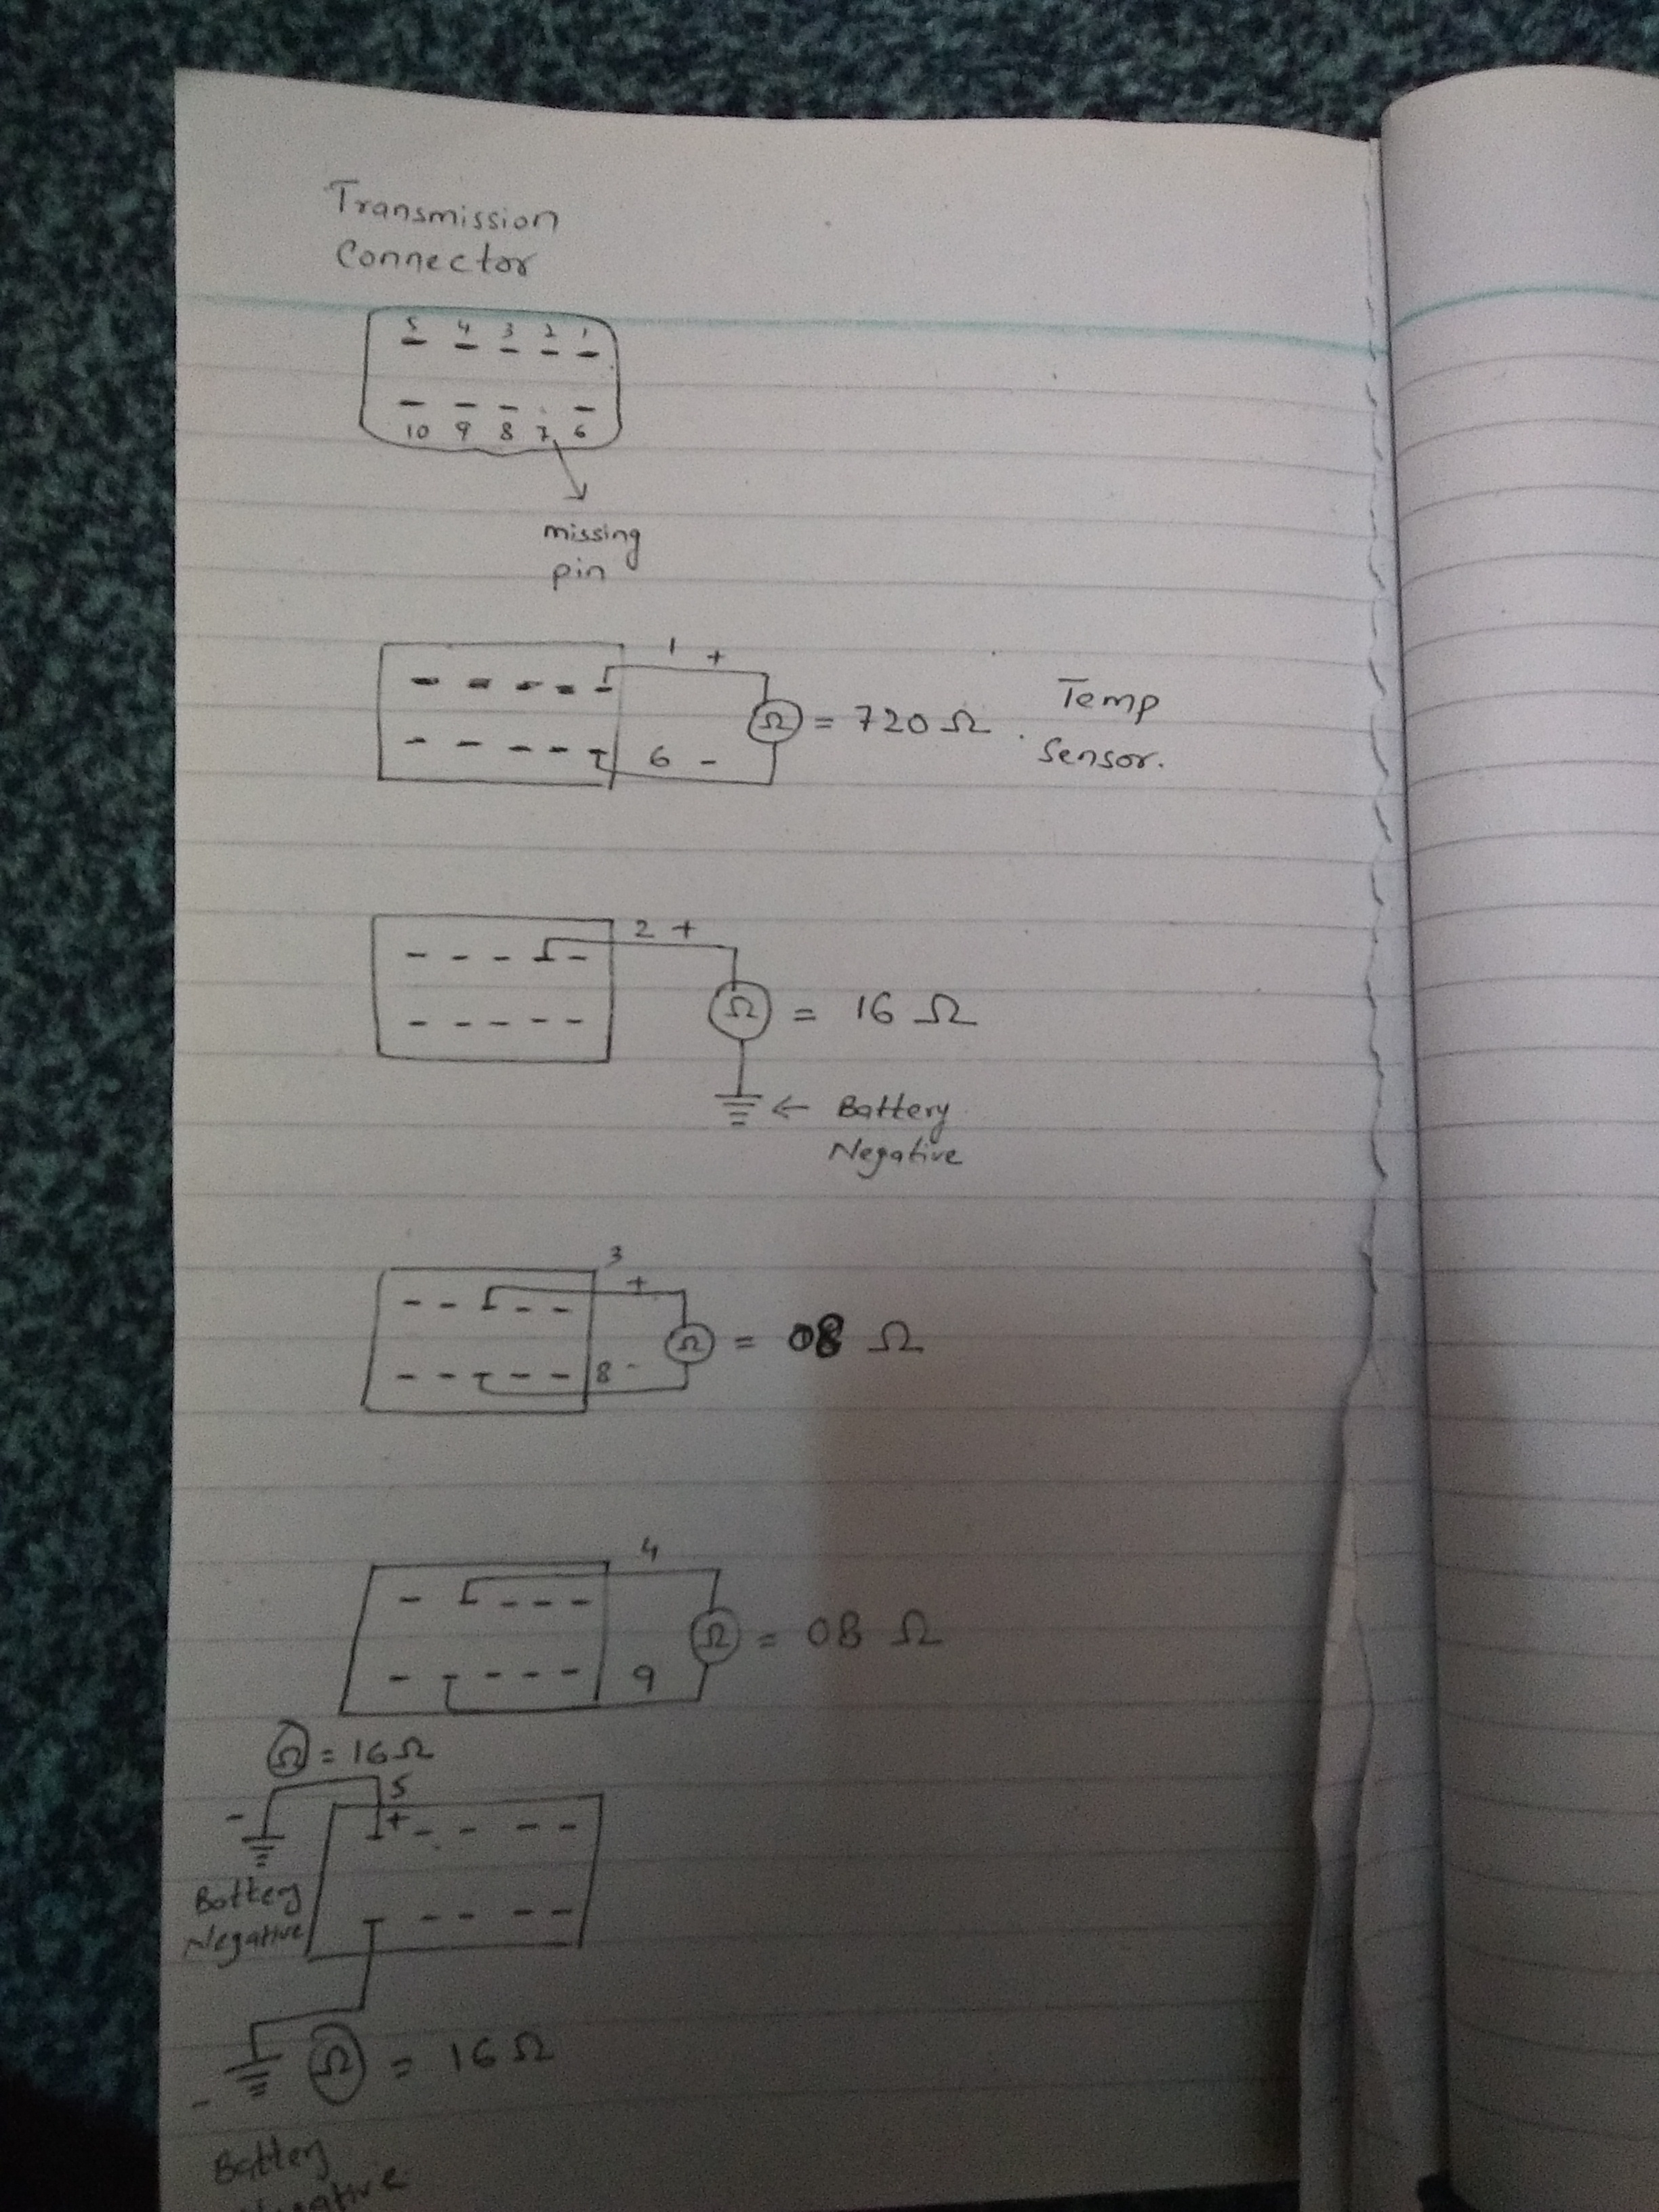 Transmission
Connector
5 4 3 2 1
10 9 8 7 6
missing
pin
1 +
Ω = 720 Ω
6 -
Temp
Sensor.
2 +
Ω = 16 Ω
← Battery
Negative
3
+
Ω = 08 Ω
8 -
4
Ω = 08 Ω
9
Ω = 16 Ω
5
- +
Battery
Negative
- Ω = 16 Ω
Battery
Negative